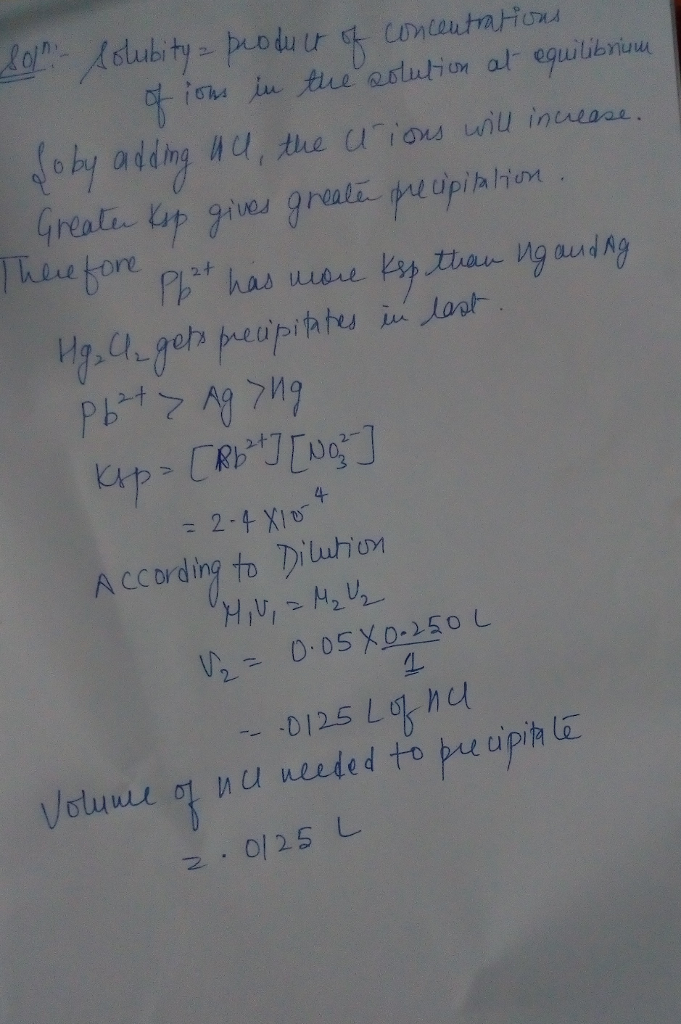 Solⁿ:- Solubity = product of concentrations
of ions in the solution at equilibrium
So by adding HCl, the Cl⁻ ions will increase.
Greater Ksp gives greater precipitation.
Therefore Pb²⁺ has more Ksp than Hg and Ag
Hg₂Cl₂ gets precipitates in last.
Pb²⁺ > Ag > Hg
Ksp = [Pb²⁺] [NO₃²⁻]
= 2.4 X10⁻⁴
According to Dilution
M₁V₁ = M₂V₂
V₂ = 0.05 X 0.250 L / 1
= .0125 L of HCl
Volume of HCl needed to precipitate
= .0125 L